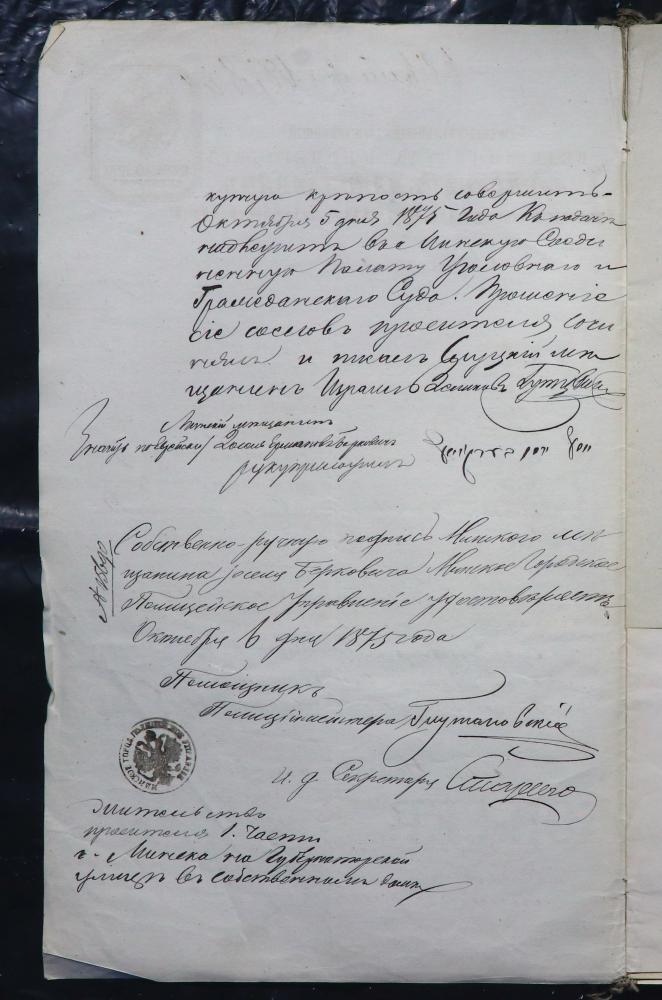 купчую крѣпость совершить.
Октября 5 дня 1875 Года Къ подачѣ
надлежитъ въ Минскую Соеди
ненную Палату Уголовнаго и
Гражданскаго Суда. Прошеніе
сіе со словъ просителя сочи
нялъ и писалъ Слуцкій мѣ
щанинъ Израиль
Минскій мѣщанинъ
Берковичъ
руку приложилъ
Собственно-ручную подпись Минскаго мѣ
щанина Іоселя Берковича Минское Городское
Полицейское Управленіе удостовѣряетъ
Октября 6 дня 1875 года
Помощникъ
Полиціймейстера
И. д. Секретаря
Жительство
просителя 1. Части
г. Минска на Губернаторской
улицѣ въ собственномъ домѣ